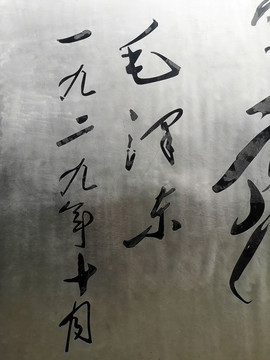 毛泽东
一九二九年十月